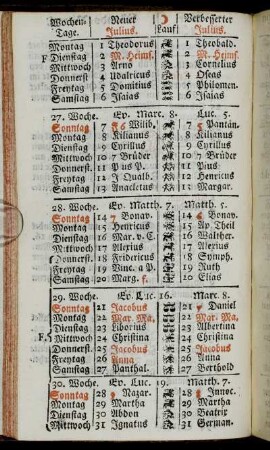 Wochen- Neuer ☽ Verbesserter
Tage. Julius. Lauf Julius.
Montag 1 Theodorus 1 Theobald.
F Dienstag 2 M. Heimf. 2 M. Heimf.
Mittwoch 3 Arno 3 Cornelius
Donnerst 4 Udalricus 4 Oseas
Freytag 5 Domitius 5 Philomen.
Samstag 6 Isaias 6 Isaias
27. Woche. Ev. Marc. 8. Luc. 5.
Sonntag 7 6 Wilib. 7 5 Pantän.
Montag 8 Kilianus 8 Kilianus
Dienstag 9 Cyrillus 9 Cyrillus
Mittwoch 10 7 Brüder 10 7 Brüder
Donnerst. 11 Pius P. 11 Pius
Freytag 12 J Gualb. 12 Henricus
Samstag 13 Anacletus 13 Margar.
28. Woche. Ev. Matth. 7. Matth. 5.
Sonntag 14 7 Bonav. 14 6 Bonav.
Montag 15 Henricus 15 Ap. Theil
Dienstag 16 Mar. v. C. 16 Walther.
Mittwoch 17 Alexius 17 Alexius
Donnerst. 18 Fridericus 18 Symph.
Freytag 19 Vinc. a P. 19 Ruth
Samstag 20 Marg. 20 Elias
29. Woche. Ev. Luc. 16. Marc. 8.
Sonntag 21 Jacobus 21 7 Daniel
Montag 22 Mar. Ma. 22 Mar. Ma.
Dienstag 23 Liborius 23 Albertina
F. Mittwoch 24 Christina 24 Christina
Donnerst. 25 Jacobus 25 Jacobus
Freytag 26 Anna 26 Anna
Samstag 27 Panthal. 27 Berthold
30. Woche. Ev. Luc. 19. Matth. 7.
Sonntag 28 9 Nazar. 28 8 Innoc.
Montag 29 Martha 29 Martha
Dienstag 30 Abdon 30 Beatrix
Mittwoch 31 Ignatus 31 German.